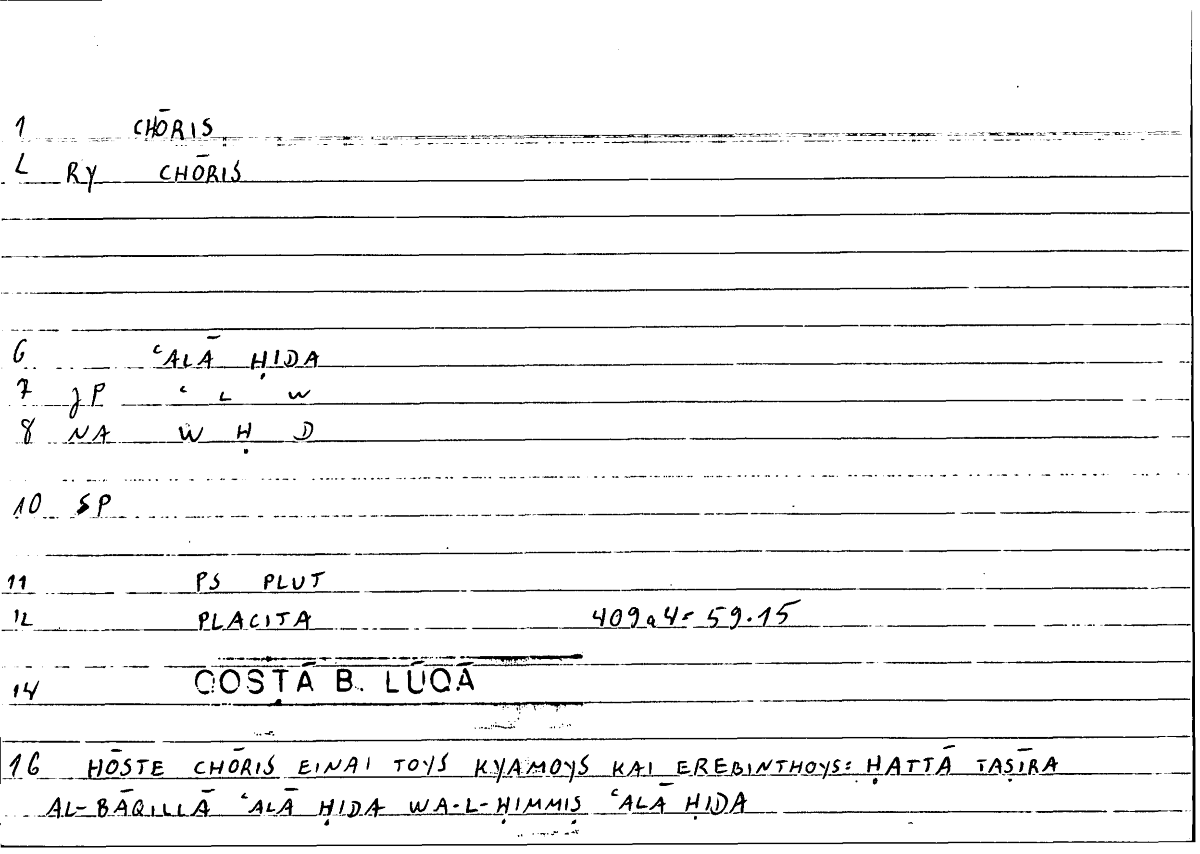 1 CHŌRIS
2 RY CHŌRIS
6 ʿALĀ ḤIDA
7 JP ʿ L W
8 NA W Ḥ D
10 SP
11 PS PLUT
12 PLACITA 409a4 = 59.15
14 QOSṬĀ B. LŪQĀ
16 HŌSTE CHŌRIS EINAI TOYS KYAMOYS KAI EREBINTHOYS: ḤATTĀ TAṢĪRA
AL-BĀQILLĀ ʿALĀ ḤIDA WA-L-ḤIMMIṢ ʿALĀ ḤIDA